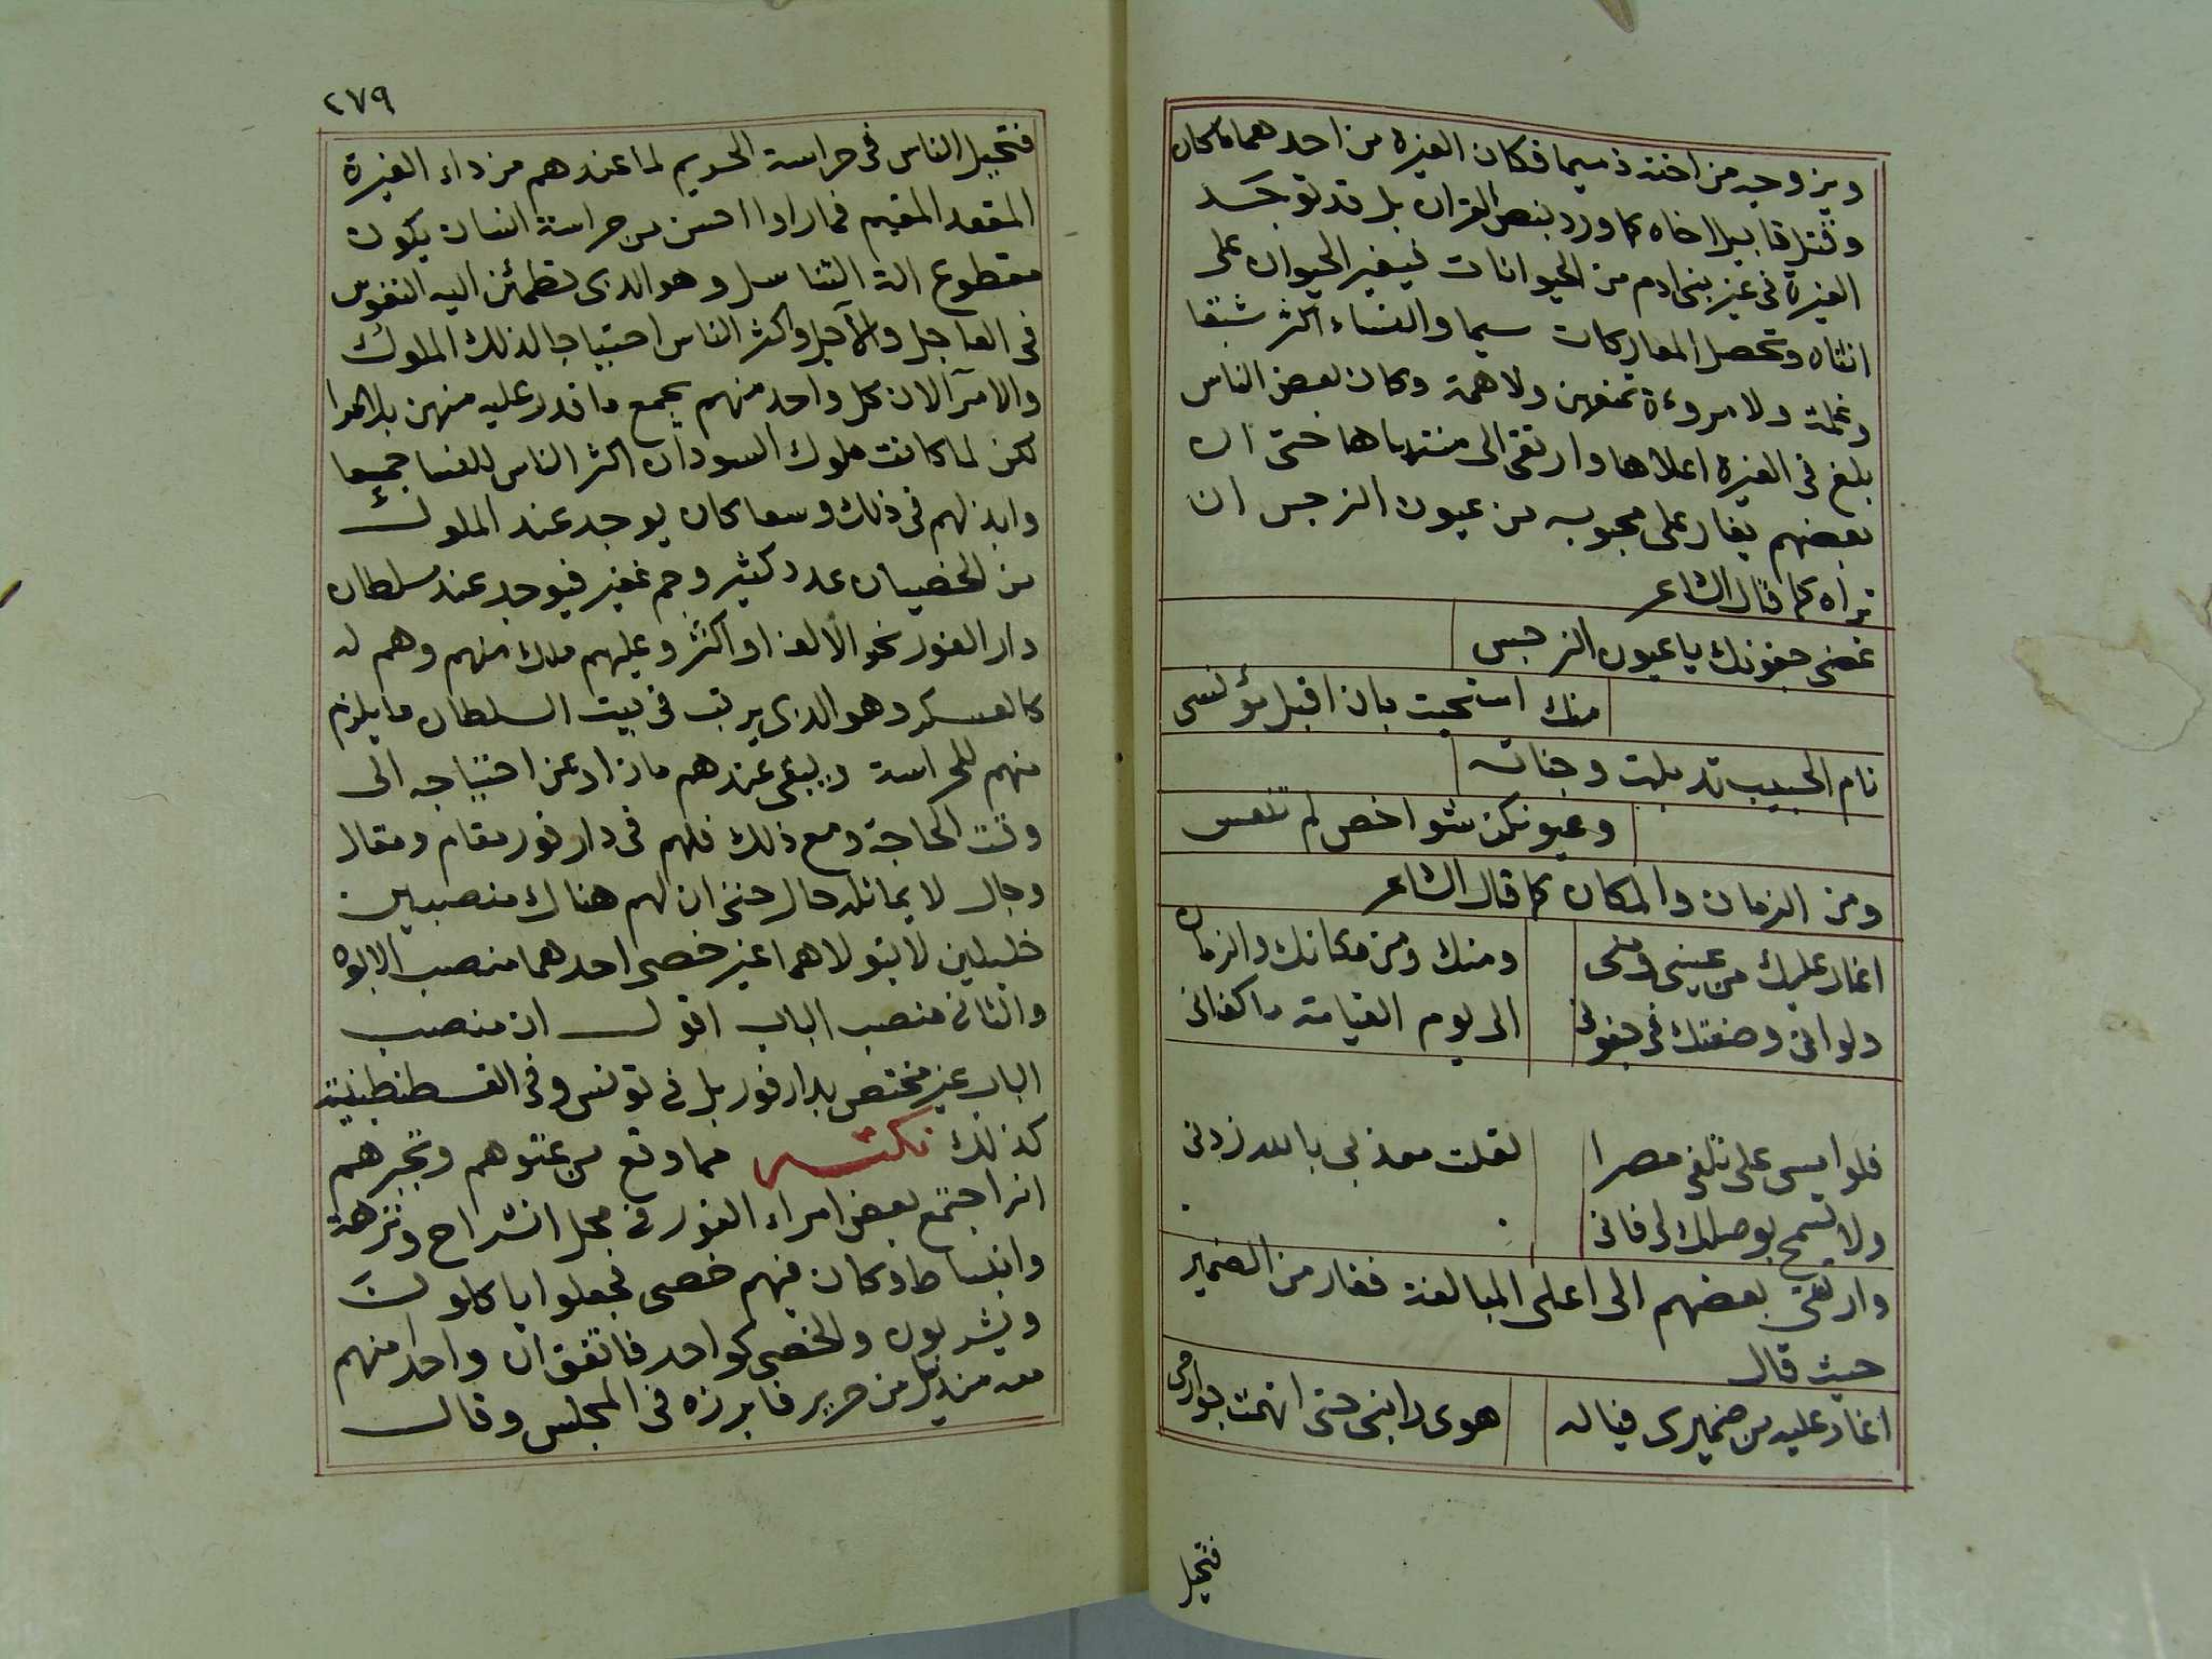 ويزوجه من اخته ذميما فكان الغيرة من احدهما ماكان
وقتل قابيل اخاه كما ورد بنص القران بل قد توجد
الغيرة فى غير بنى ادم من الحيوانات فيغير الحيوان على
انثاه وتحصل المعاركات سيما والنساء اكثر شبقا
وغلمة ولا مروءة تمنعهن ولا همة وكان بعض الناس
بلغ فى الغيرة اعلاها وارتقى الى منتهاها حتى ان
بعضهم يغار على محبوبه من عيون النرجس ان
تراه كما قال الشاعر
غضى جفونك يا عيون النرجس
منك استحيت بان اقبل مؤنسى
نام الحبيب تذبلت وجناته
وعيونكن شواخص لم تنعس
ومن الزمان والمكان كما قال الشاعر
اغار عليك من عينى ومنى ومنك ومن مكانك والزمان
ولو انى وضعتك فى جفونى الى يوم القيامة ما كفانى
فلو امسى على تلفى مصرا لقلت معذبى بالله زدنى
ولا تسمح بوصلك لى فانى
وارتقى بعضهم الى اعلى المبالغة فغار من الضمير
حيث قال
اغار عليه من ضميرى فياله هوى رابنى حتى اتهمت جوارحى
فتحيل
٢٧٩
فتحيل الناس فى حراسة الحريم لما عندهم من داء الغيرة
المقعد المقيم فما راوا احسن من حراسة انسان يكون
مقطوع الة التناسل وهو الذى تطمئن اليه النفوس
فى العاجل والآجل واكثر الناس احتياجا لذلك الملوك
والامرآ لان كل واحد منهم يجمع ما قدر عليه منهن بلا حوا
لكن لما كانت ملوك السودان اكثر الناس للنسا جمعا
وابذلهم فى ذلك وسعا كان يوجد عند الملوك
من الخصيان عدد كثير وجم غفير فيوجد عند سلطان
دار الفور نحو الالف او اكثر وعليهم ملك منهم وهم له
كالعسكر وهو الذى يرتب فى بيت السلطان ما يلزم
منهم للحراسة ويبقى عندهم ما زاد عن احتياجه الى
وقت الحاجة ومع ذلك فلهم فى دار فور مقام ومقال
وحال لا يماثله حال حتى ان لهم هناك منصبين
جليلين لا يتولاهما غير خصى احدهما منصب الابوه
والثانى منصب الباب اقول ان منصب
الباب غير مختص بدار فور بل فى تونس وفى القسطنطينية
كذلك نكتة مما وقع من عتوهم وتجبرهم
انه اجتمع بعض امراء الفور فى محل انشراح ونزهة
وانبساط وكان فيهم خصى فجعلوا ياكلون
ويشربون والخصى كواحد فاتفق ان واحدا منهم
معه منديل من حرير فابرزه فى المجلس وقال